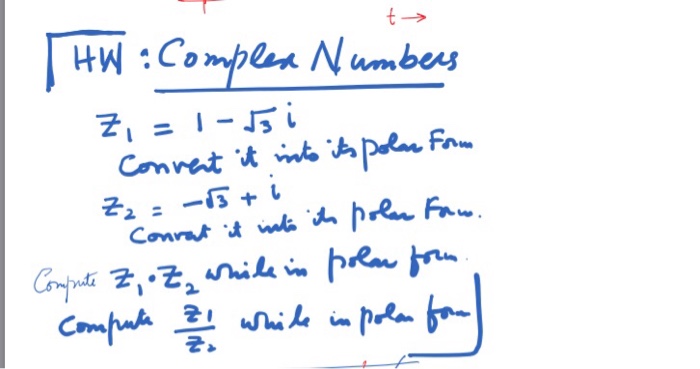 t →
HW : Complex Numbers
Z₁ = 1 - √3 i
Convert it into its polar Form
Z₂ = -√3 + i
Convert it into its polar Form.
Compute Z₁ · Z₂ while in polar form.
Compute Z₁/Z₂ while in polar form